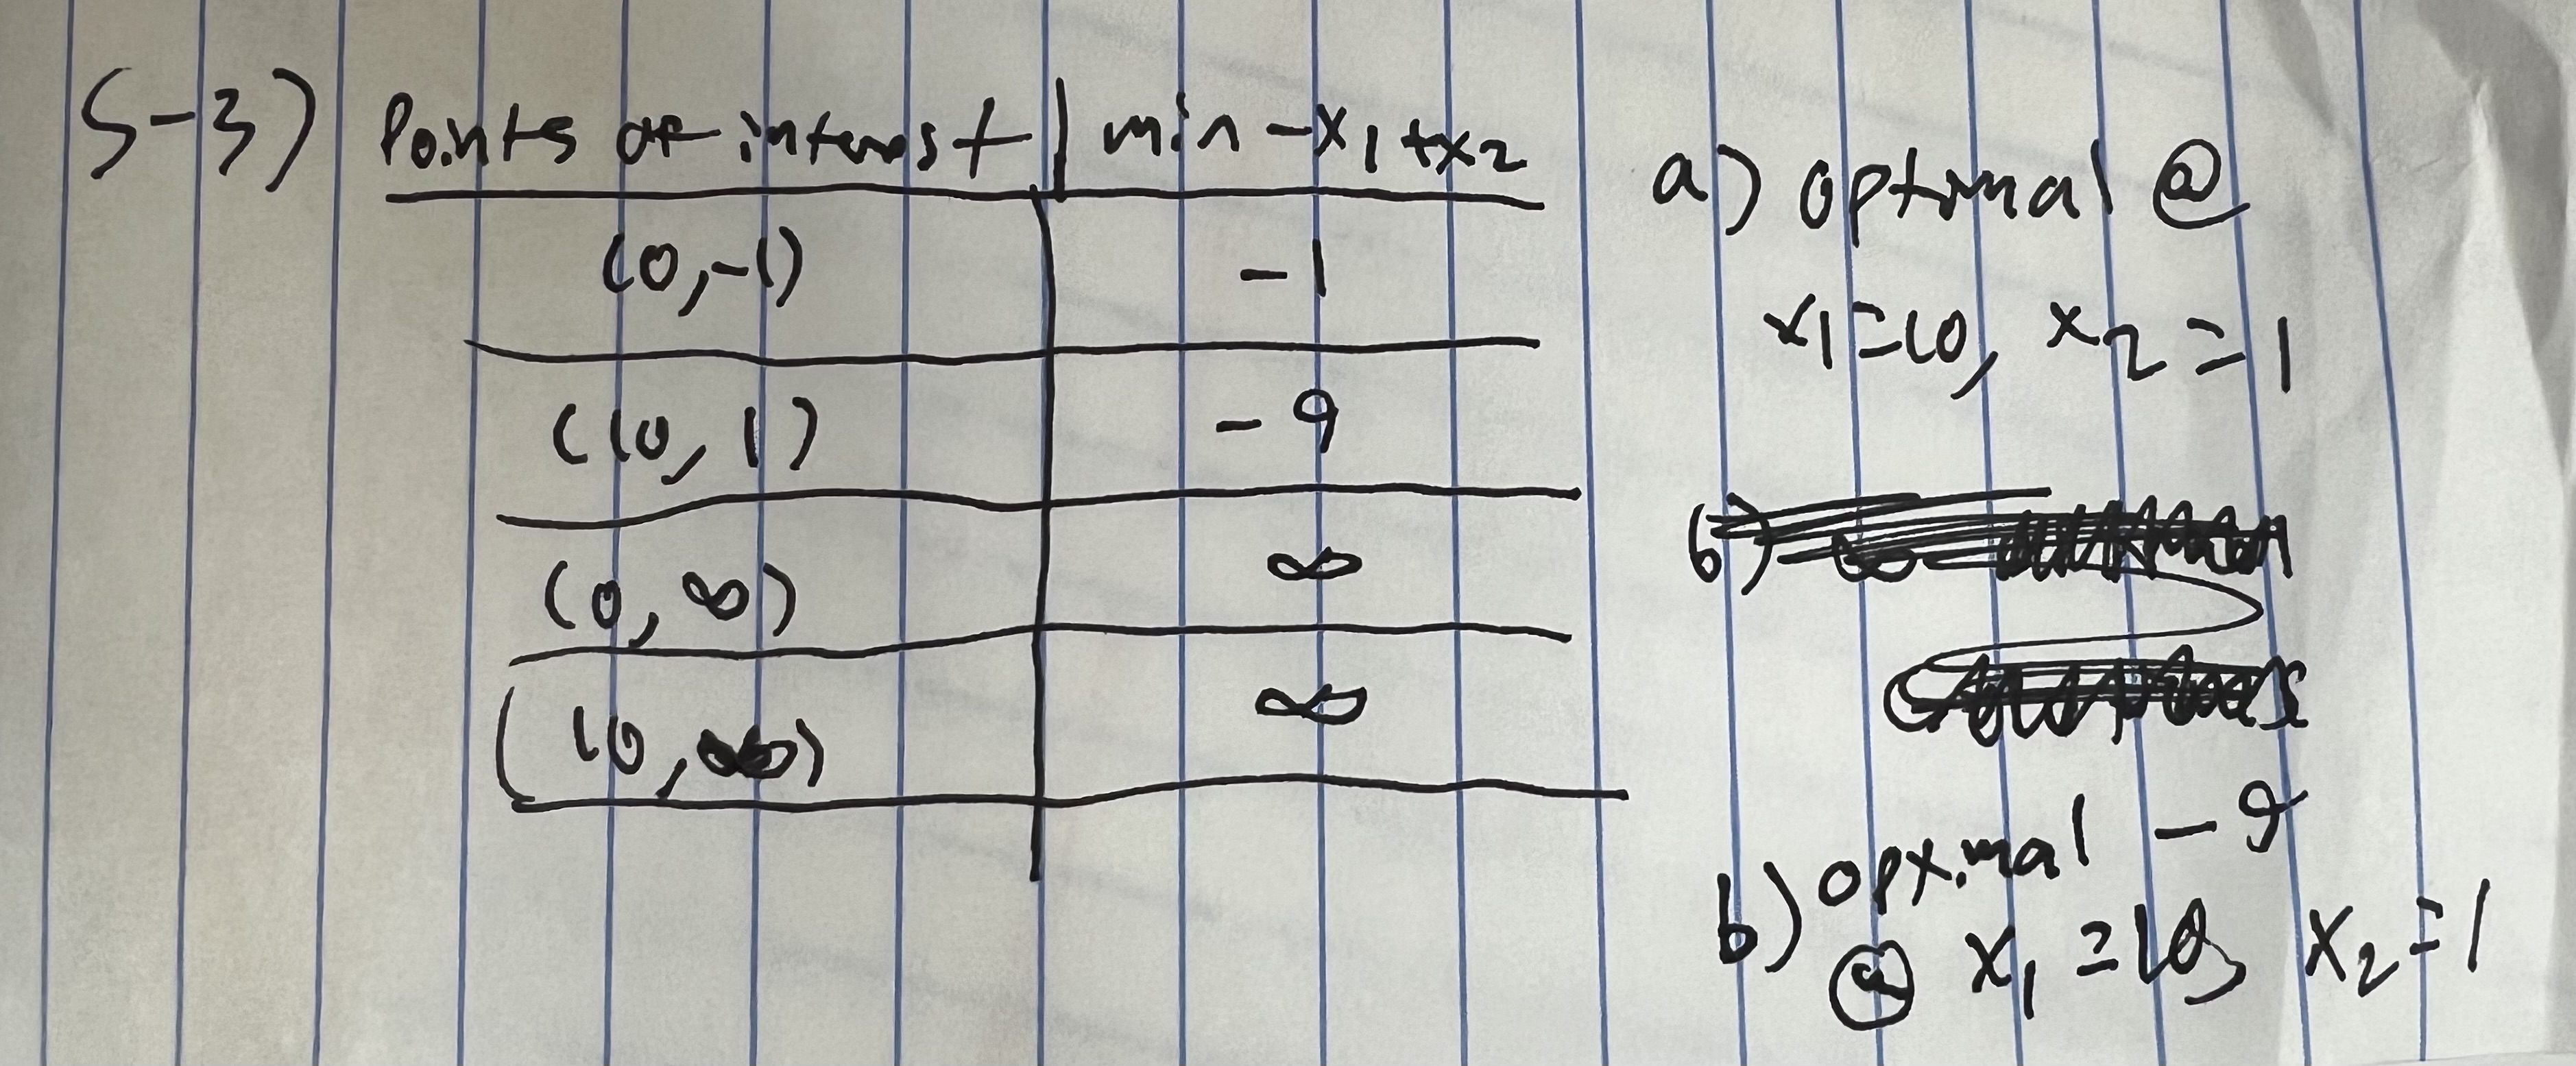 5-3) Points of interest | min -x1 + x2
(0,-1) -1
(10, 1) -9
(0, ∞) ∞
(10, ∞) ∞
a) optimal @
x1=10, x2=1
b)
b) optimal -9
@ x1=10, x2=1